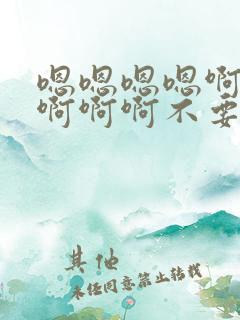 嗯嗯嗯嗯啊
啊啊啊不要
其他
未经同意禁止转载